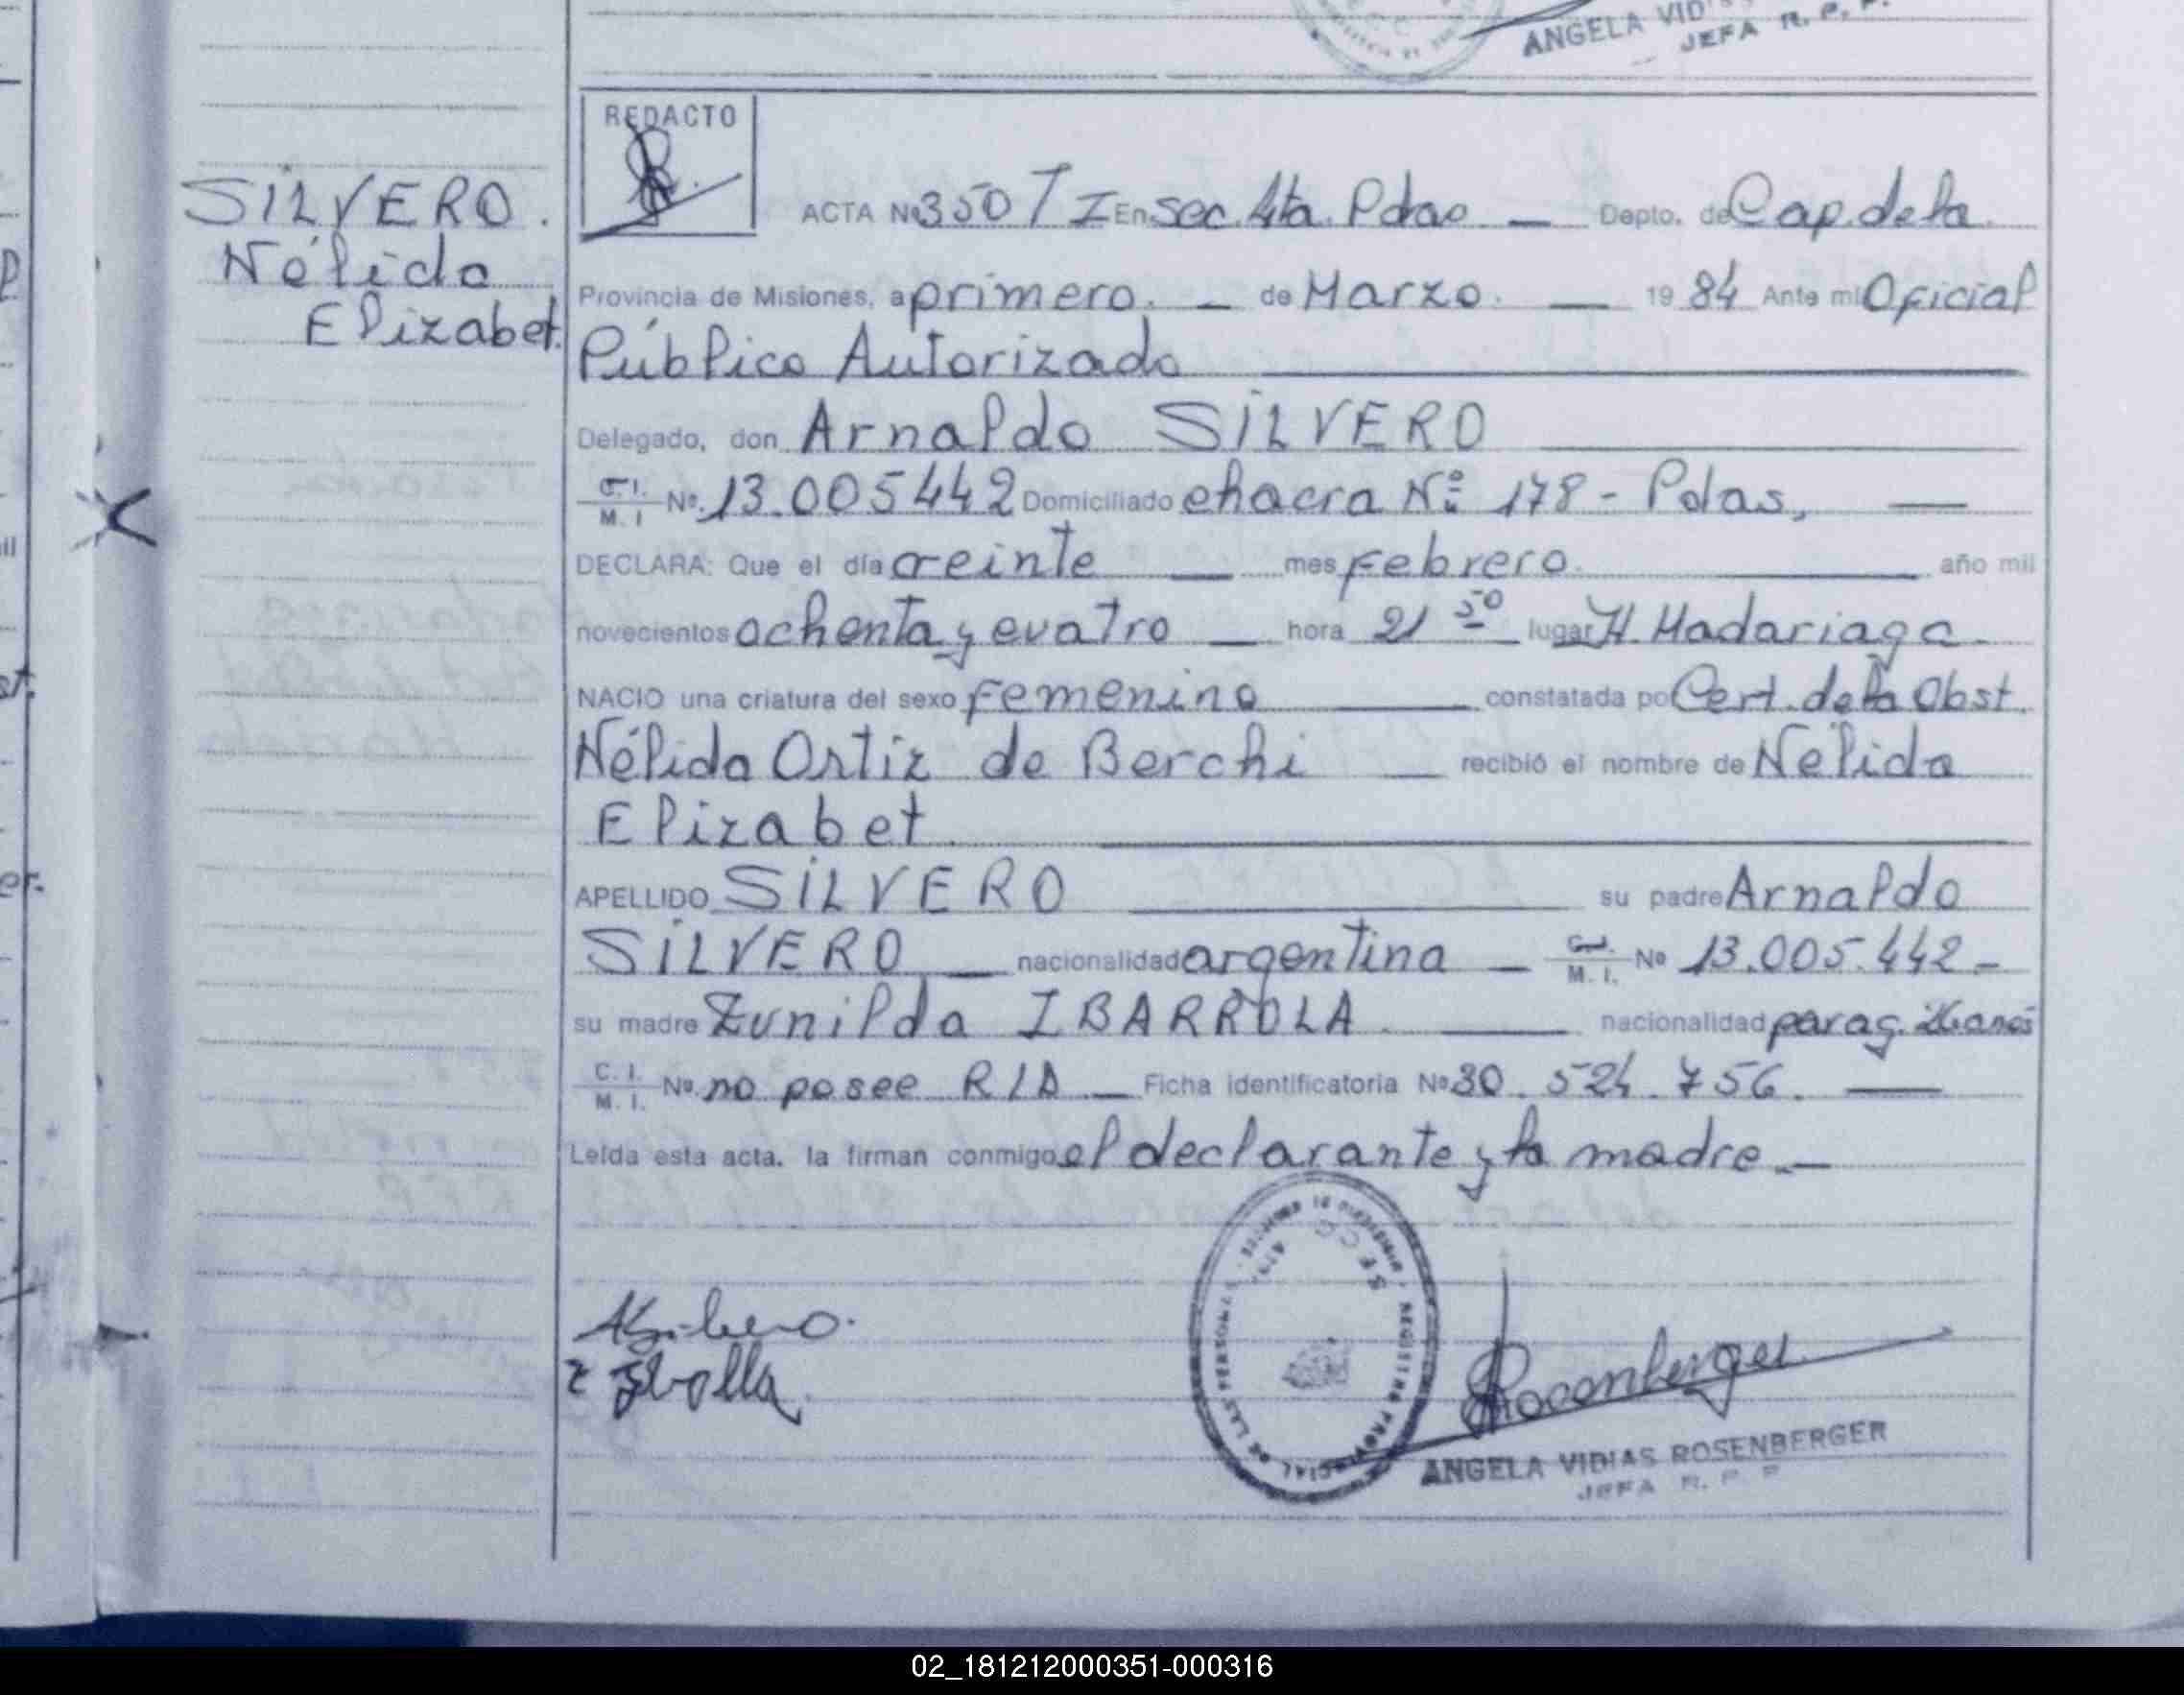 ANGELA VIDI
JEFA R. P. P.
REDACTO
SILVERO.
Nélida
Elizabet.
ACTA Nº 350 T I En Sec. 4ta. Pdas — Depto. de Cap. de la
Provincia de Misiones, a primero. — de Marzo. — 19 84 Ante mi Oficial
Público Autorizado
Delegado, don Arnaldo SILVERO
C.I. M.I Nº. 13.005442 Domiciliado chacra Nº 178 - Pdas, —
DECLARA: Que el día veinte — mes Febrero. — año mil
novecientos ochenta y cuatro — hora 21 50 lugar H. Madariaga.
NACIO una criatura del sexo Femenino — constatada po Cert. de la Obst.
Nélida Ortiz de Berchi — recibió el nombre de Nélida
Elizabet.
APELLIDO SILVERO — su padre Arnaldo
SILVERO — nacionalidad argentina — C.I. M.I. Nº 13.005.442 -
su madre Zunilda IBARROLA. — nacionalidad parag. 26 anos
C.I. M.I. Nº no posee R/D. — Ficha identificatoria Nº 30.524.756. —
Leída esta acta, la firman conmigo el declarante y la madre. —
Rosenberger
ANGELA VIDIAS ROSENBERGER
JEFA R. P. P
02_181212000351-000316